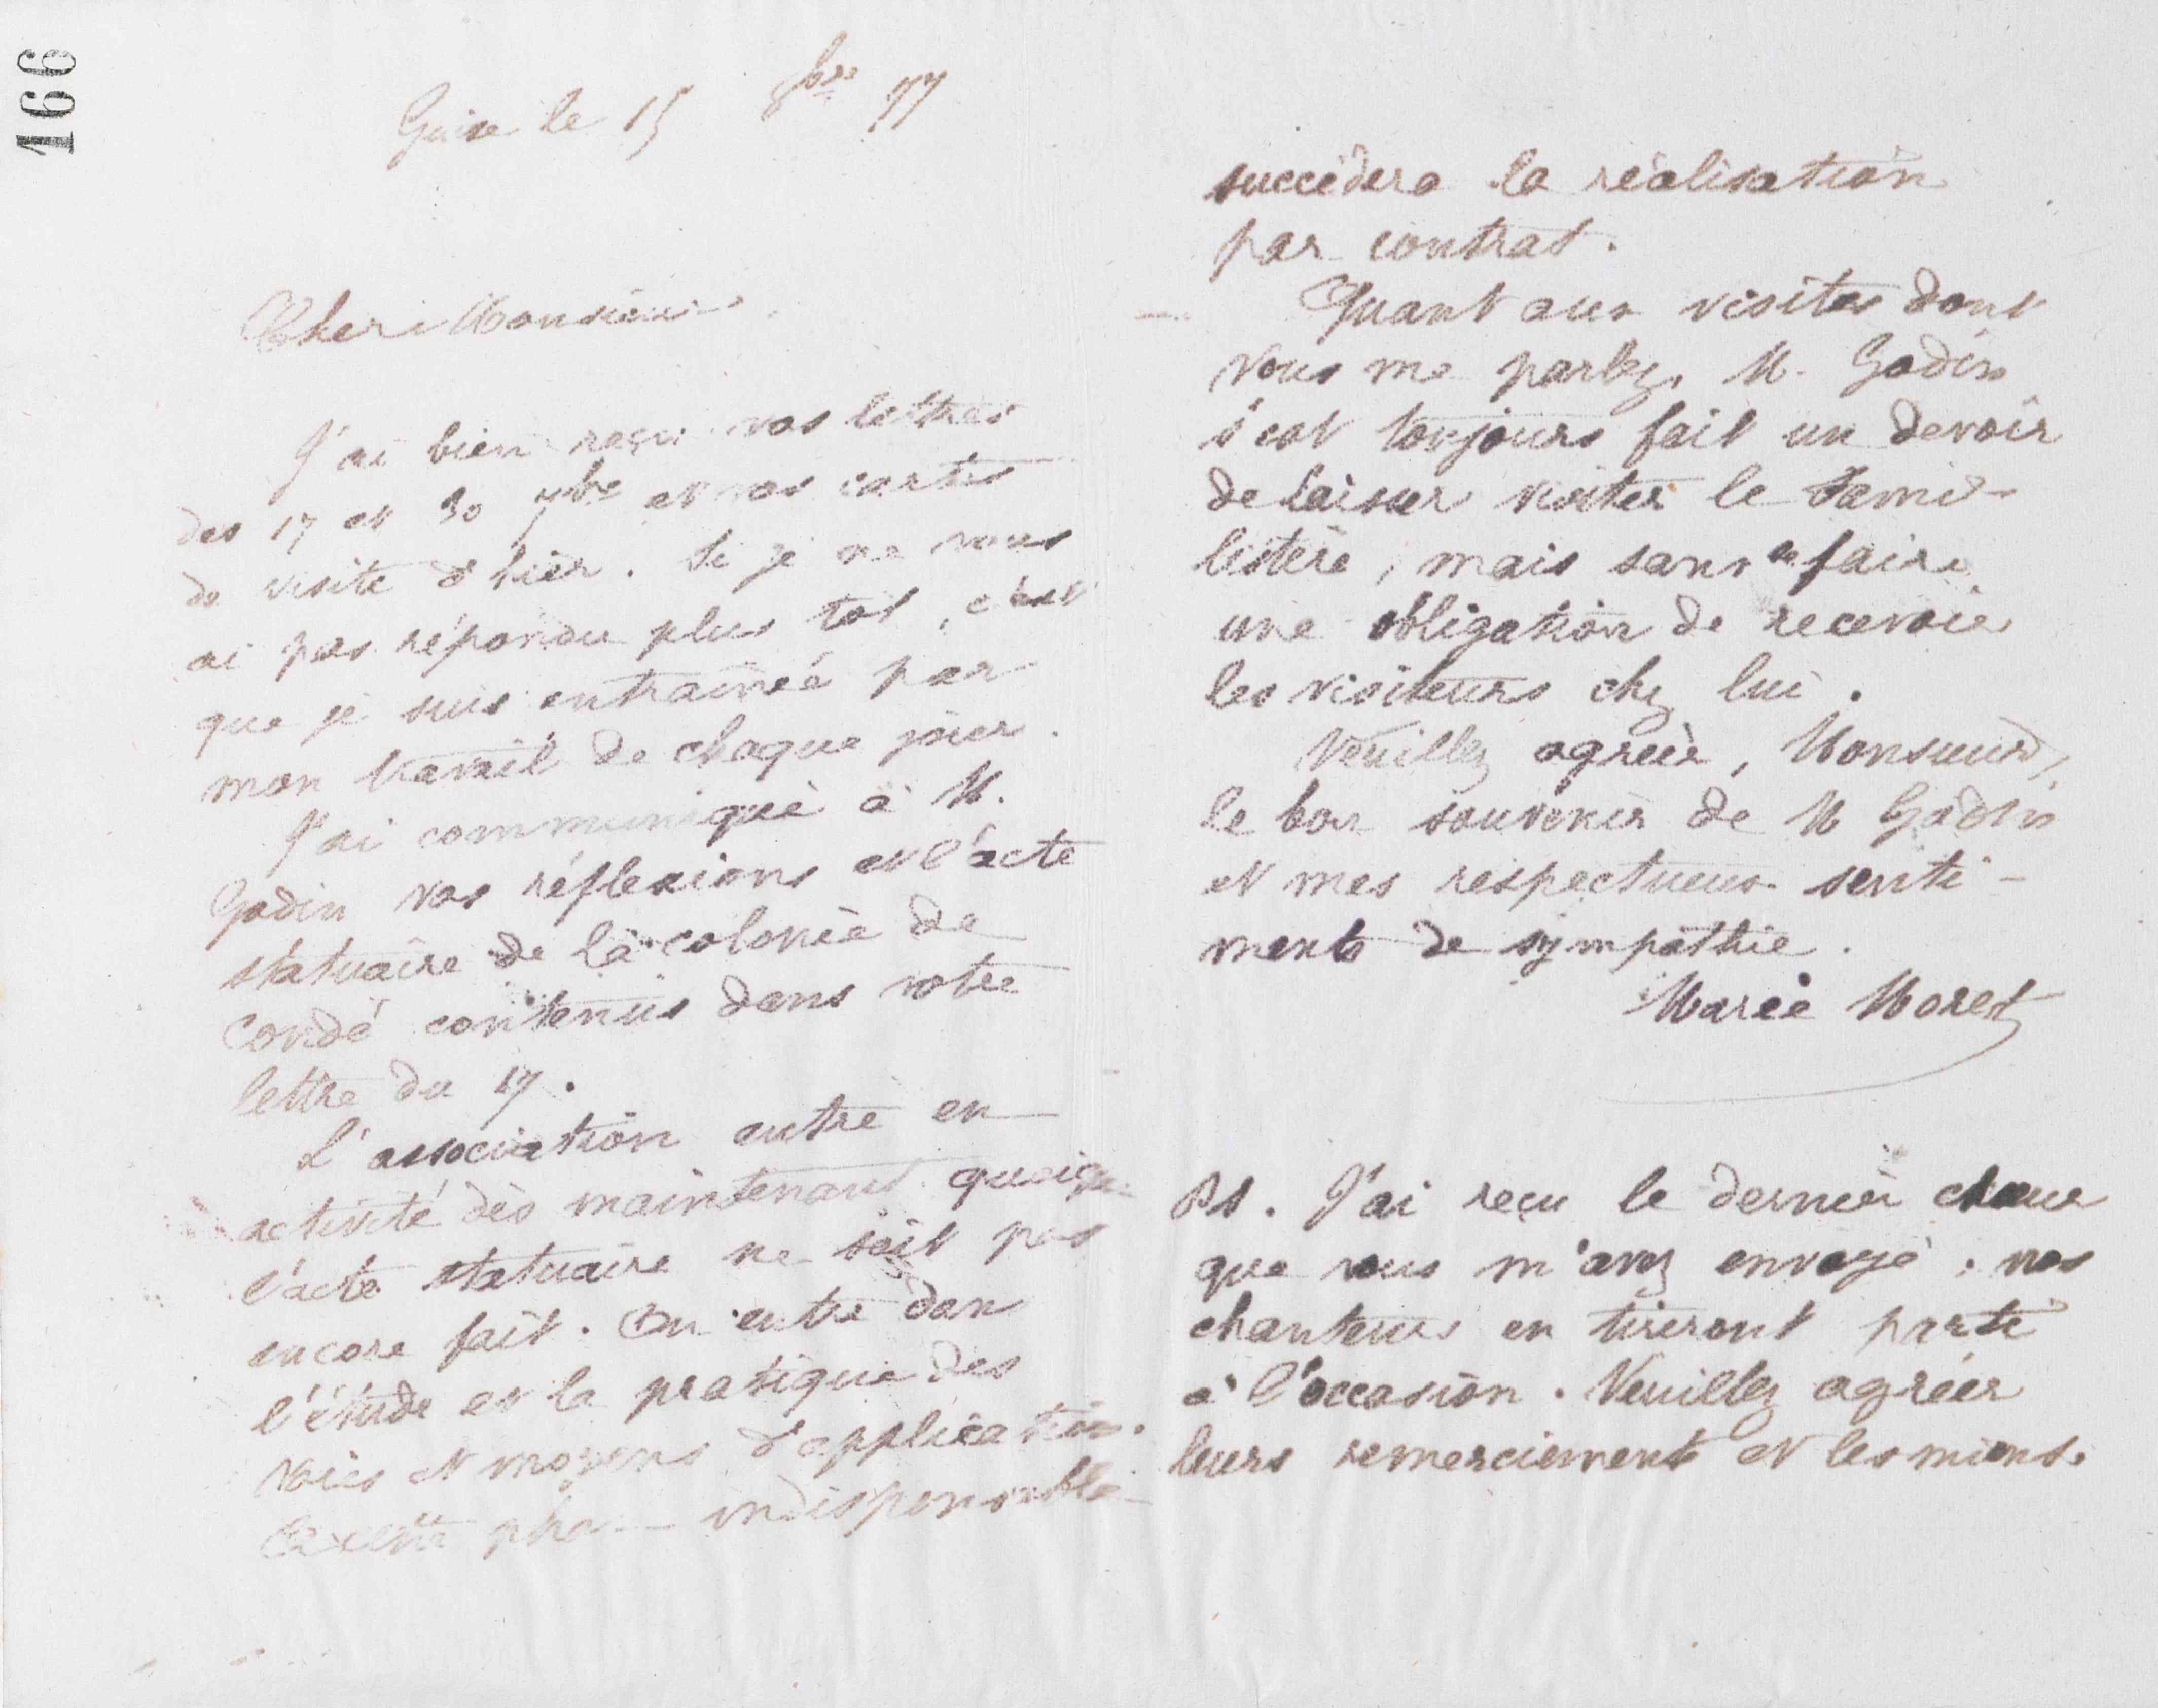 166
Guise le 15 8bre 77
Cher Monsieur,
J'ai bien reçu vos lettres
des 17 et 30 7bre et vos cartes
de visite d'hier. Si je ne vous
ai pas répondu plus tôt, c'est
que je suis entrainée par
mon travail de chaque jour.
J'ai communiqué à M.
Godin vos réflexions et l'acte
statuaire de la colonie de
Condé contenus dans votre
lettre du 17.
L'association entre en
activité dès maintenant quoique
l'acte statuaire ne soit pas
encore fait. On entre dan
l'étude et la pratique des
voies et moyens d'application.
indispensable
succèdera la réalisation
par contrat.
Quant aux visites dont
vous me parlez, M. Godin
s'est toujours fait un devoir
de laisser visiter le Fami-
listère, mais sans se faire
une obligation de recevoir
les visiteurs chez lui.
Veuillez agréer, Monsieur,
le bon souvenir de M Godin
et mes respectueux senti-
ments de sympathie.
Marie Moret
Ps. J'ai reçu le dernier chœur
que vous m'avez envoyé, nos
chanteurs en tireront parti
à l'occasion. Veuillez agréer
leurs remerciements et les miens.